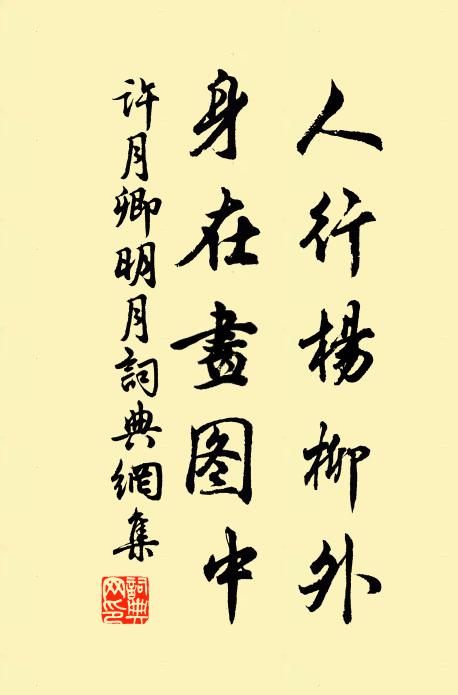 人行楊柳外
身在畫图中
許月卿明月詞典網集
詞典网印